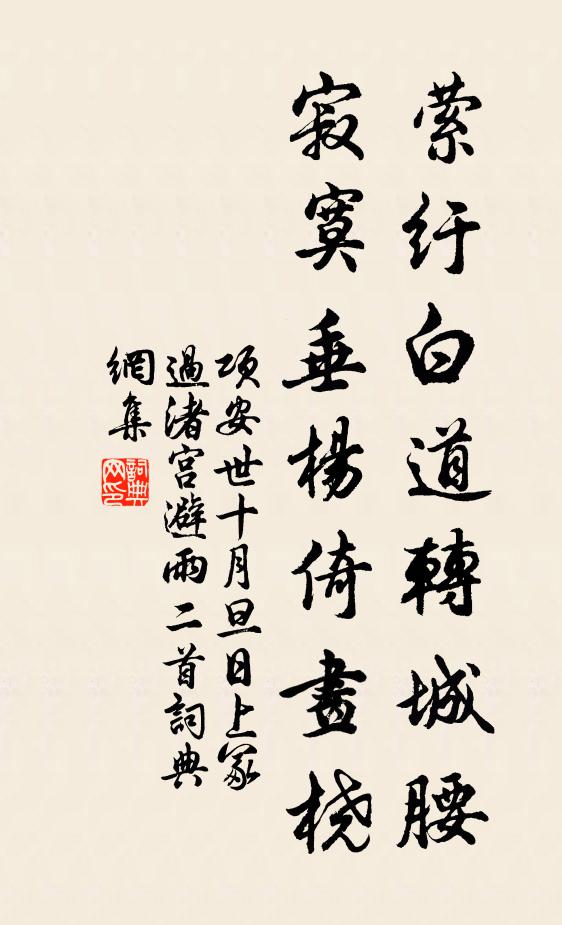 縈紆白道轉城腰
寂寞垂楊倚畫橈
項安世十月旦日上冢
過渚宮避雨二首詞典
網集
詞典
网印